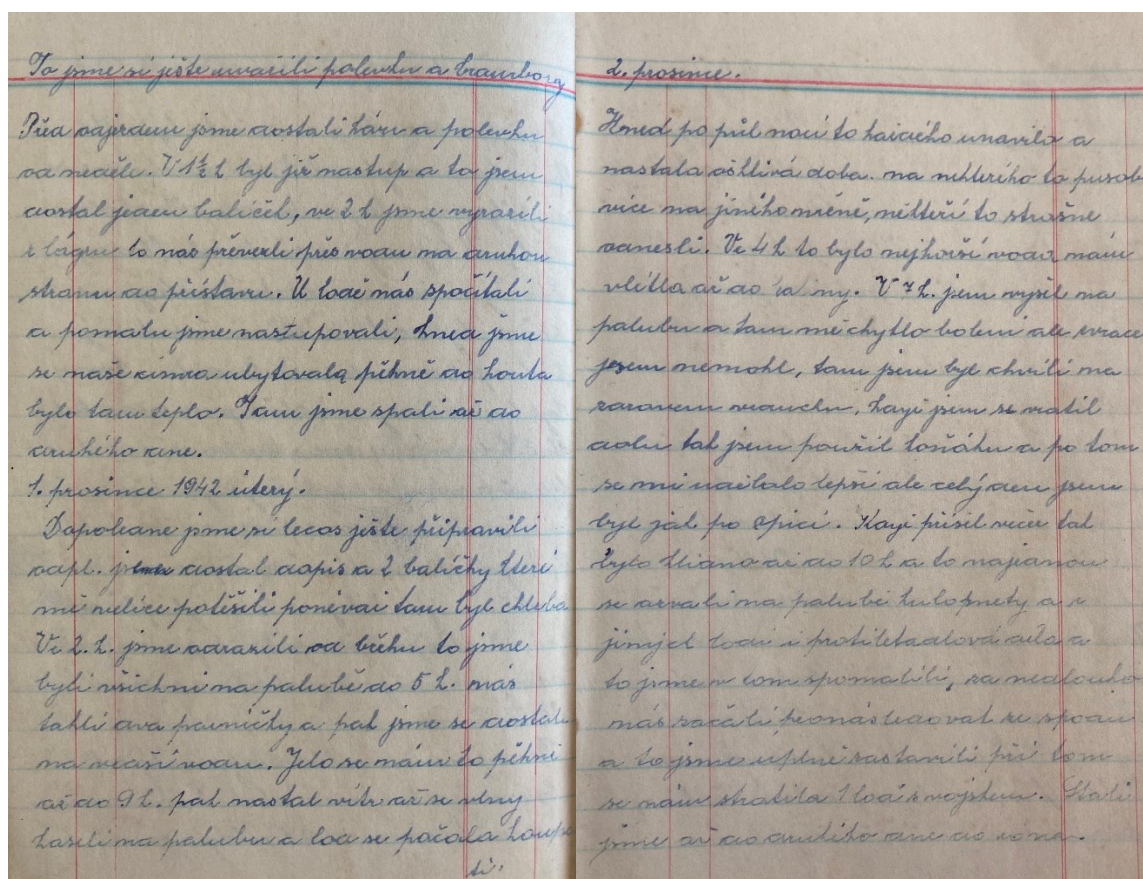 To jsme si ještě uvařili polevku a bramborg
Před vajezdem jsme dostali kávu a polevku
od neděle. V 1½ h byl již nastup a to jsem
dostal jeden balíček, ve 2 h jsme vyrazili
z lágru to nás převezli přes vodu na druhou
stranu do přístavu. U lodě nás spočítali
a pomalu jsme nastupovali, hned jsme
se naše cimra ubytovala pěkně do kouta
bylo tam teplo. Tam jsme spali až do
druhého dne.
1. prosince 1942 úterý.
Dopoledne jsme si lecos ještě připravili
odpl. jsem dostal dopis a 2 balíčky kteri
mě velice potěšili poněvač tam byl chleba
Ve 2. h. jsme odrazili od břehu to jsme
byli všichni na palubě do 5 h. nás
tahli dva parníčky a pak jsme se dostali
na vetší vodu. Jelo se nám to pěkni
až do 9 h. pak nastal vítr až se vlny
házeli na palubu a loď se počala houpa
ti.
2. prosinec.
Hned po půl noci to každého unavilo a
nastala ošklivá doba. na některiho to pusob
více na jiného méně, někteří to strašne
odnesli. Ve 4 h to bylo nejhorší voda nám
vlítla až do. V 7 h. jsem vyšel na
palubu a tam mě chytlo bolení ale zvrace
jsem nemohl, tam jsem byl chvíli na
zdravem vzduchu, když jsem se vratil
dolu tak jsem použil koňáku a po tom
se mi udělalo lepší ale celý den jsem
byl jak po opici. Když přišel večer tak
bylo klidno až do 10 h a to najednou
se ozvali na palubě kulomety a z
jinych lodi i protiletadlová děla a
to jsme v tom spomalili, za nedlouho
nás začali pronásledovat ze spodu
a to jsme uplně zastavili při tom
se nám stratila 1 loď s vojskem. Stali
jsme až do druhiho dne do rana.